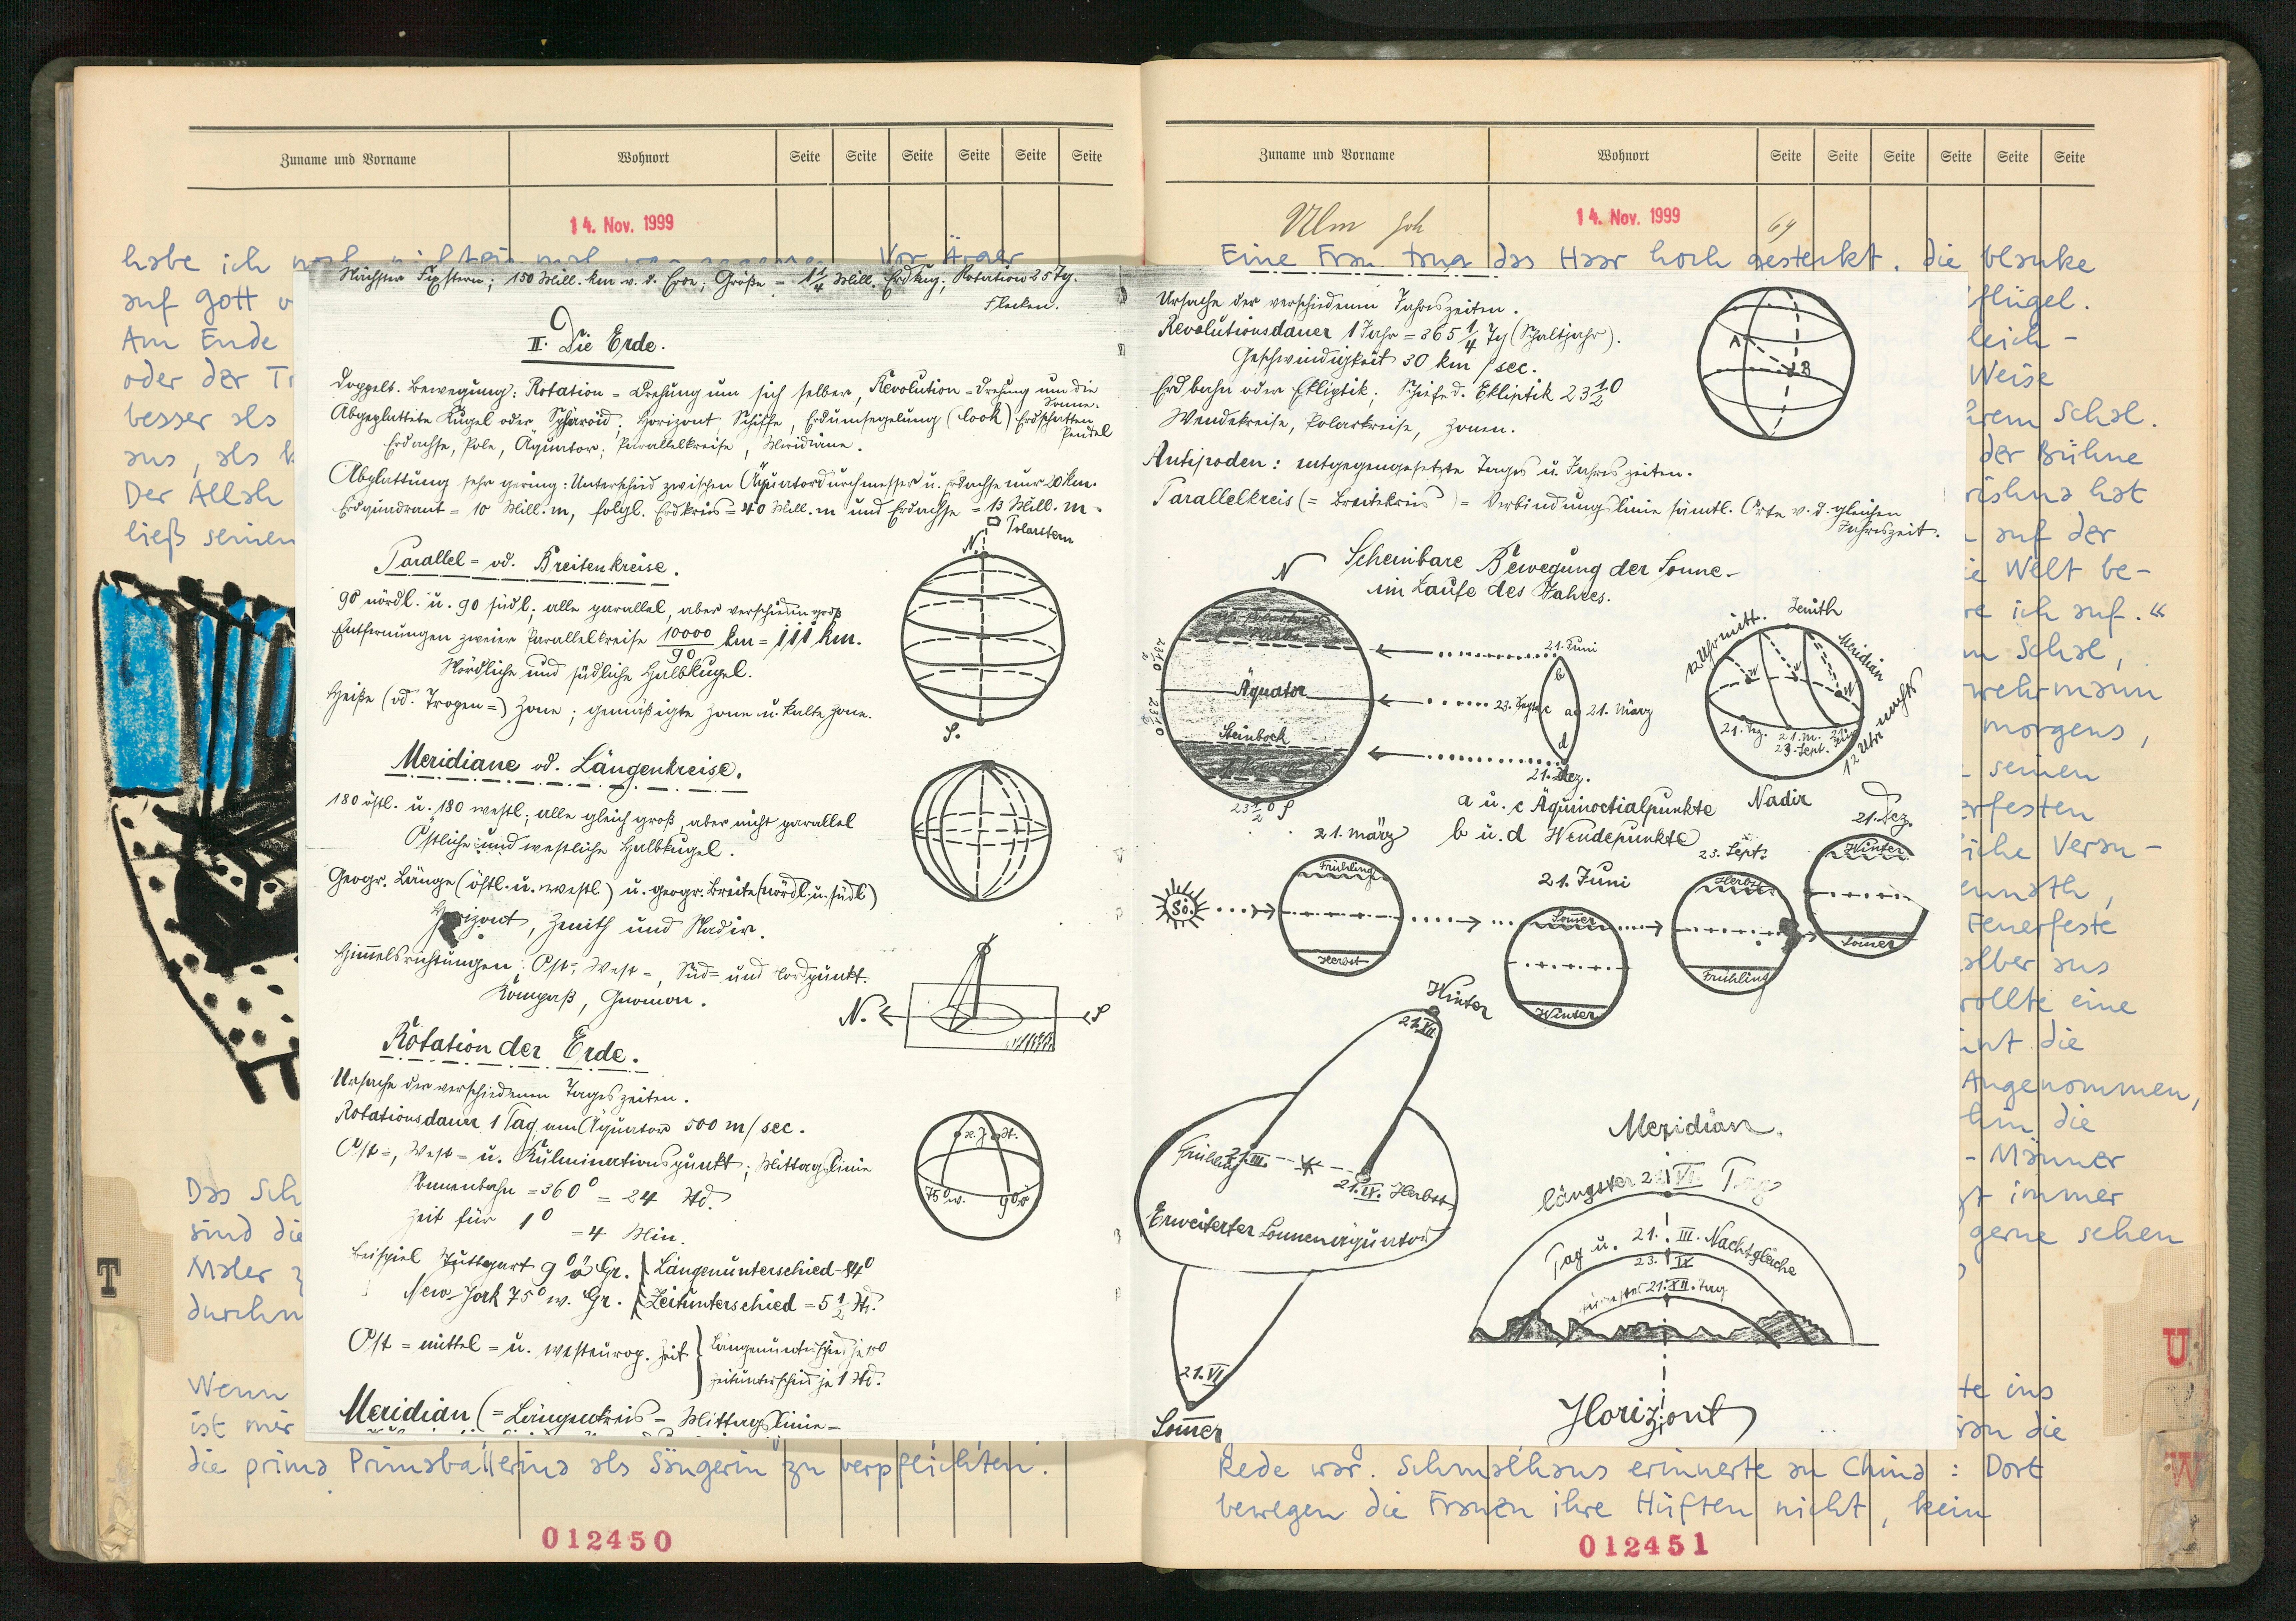 Zuname und Vorname Wohnort Seite Seite Seite Seite Seite Seite
14. Nov. 1999
habe ich Vor Ärger
auf Gott
Am Ende
oder der
besser als
aus, als
Der Allah
ließ seinen
Das
sind die
Maler
durch
Wenn
ist mir
die prima Primaballerina als Sängerin zu verpflichten.
012450
T
Nächster Fixstern; 150 Mill. km v. d. Erde; Größe = 1 1/4 Mill. Erdkug; Rotation 25 Tg.
Flecken.
II. Die Erde.
Doppelt. Bewegung: Rotation = Drehung um sich selber, Revolution = Drehung um die
Sonne.
Abgeplattete Kugel oder Sphäroid; Horizont, Schiffe, Erdumsegelung (Cook) Erdschatten
Pendel
Erdachse, Pole, Äquator; Parallelkreise, Meridiane.
Abplattung sehr gering: Unterschied zwischen Äquatordurchmesser u. Erdachse nur 20 km.
Erdquadrant = 10 Mill. m, folgl. Erdkreis = 40 Mill. m und Erdachse = 13 Mill. m.
N. Polarstern
Parallel= od. Breitenkreise.
90 nördl. u. 90 südl; alle parallel, aber verschieden groß
Entfernungen zweier Parallelkreise 10000/90 km = 111 km.
Nördliche und südliche Halbkugel.
Heiße (od. Tropen=) Zone; gemäßigte Zone u. kalte Zone.
S.
Meridiane od. Längenkreise.
180 östl. u. 180 westl; alle gleich groß, aber nicht parallel
Östliche und westliche Halbkugel.
Geogr. Länge (östl. u. westl.) u. geogr. Breite (nördl. u. südl)
Horizont, Zenith und Nadir.
Himmelsrichtungen: Ost=, West=, Süd= und Nordpunkt.
Kompaß, Gnomon.
N. S
Rotation der Erde.
Ursache der verschiedenen Tageszeiten.
Rotationsdauer 1 Tag am Äquator 500 m/sec.
Ost=, West= u. Kulminationspunkt; Mittagslinie
Sonnenbahn = 360° = 24 Std.
Zeit für 1° = 4 Min.
75° w. 9° ö
Beispiel Stuttgart 9° ö Gr. Längenunterschied 84°
New-York 75° w. Gr. Zeitunterschied = 5 1/2 Std.
Ost= mittel= u. westeurop. Zeit Längenunterschied je
Zeitunterschied je 1 Std.
Meridian (= Längenkreis = Mittagslinie=
Zuname und Vorname Wohnort Seite Seite Seite Seite Seite Seite
Ulm
14. Nov. 1999
Eine Frau trug das Haar hoch gesteckt. Die blanke
flügel.
leich-
Weise
hrem Schal.
der Bühne
rishna hat
auf der
Welt be-
re ich auf.“
Schal,
wehrmann
morgens,
seinen
erfesten
iche Veran-
Feuerfeste
alber aus
wollte eine
die
Angenommen,
die
- Männer
immer
gerne sehen
ins
die
Rede war. Schmalhaus erinnerte an China: Dort
bewegen die Frauen ihre Hüften nicht, kein
012451
U
W
Ursache der verschiedenen Jahreszeiten.
Revolutionsdauer 1 Jahr = 365 1/4 Tg (Schaltjahr).
Geschwindigkeit 30 km/sec.
Erdbahn oder Ekliptik; Schiefe d. Ekliptik 23 1/2°
Wendekreise, Polarkreise, Zonen.
A
B
Antipoden: entgegengesetzte Tages u. Jahreszeiten.
Parallelkreis (= Breitekreis) = Verbindungslinie sämtl. Orte v. d. gleichen
Jahreszeit.
Scheinbare Bewegung der Sonne
im Laufe des Jahres.
N
Krebs
Äquator
Steinbock
23 1/2° S
21. Juni
b
23. Sept. c a 21. März
d
21. Dez.
Zenith
12 Uhr mitt.
Meridian
12 Uhr nachts
21. Dez.
21. M.
23. Sept.
Nadir
a u. c Äquinoctialpunkte
b u. d Wendepunkte
21. März
21. Juni
23. Sept.
21. Dez.
So.
Frühling
Herbst
Sommer
Winter
Herbst
Frühling
Winter
Sommer
Winter
21. XII
Frühling 21. III.
21. IX. Herbst
Erweiterter Sonnenäquator
21. VI
Sommer
Meridian.
längster 21. VI. Tag
Tag u. 21. III. Nachtgleiche
23. IX
21. XII. Tag
Horizont